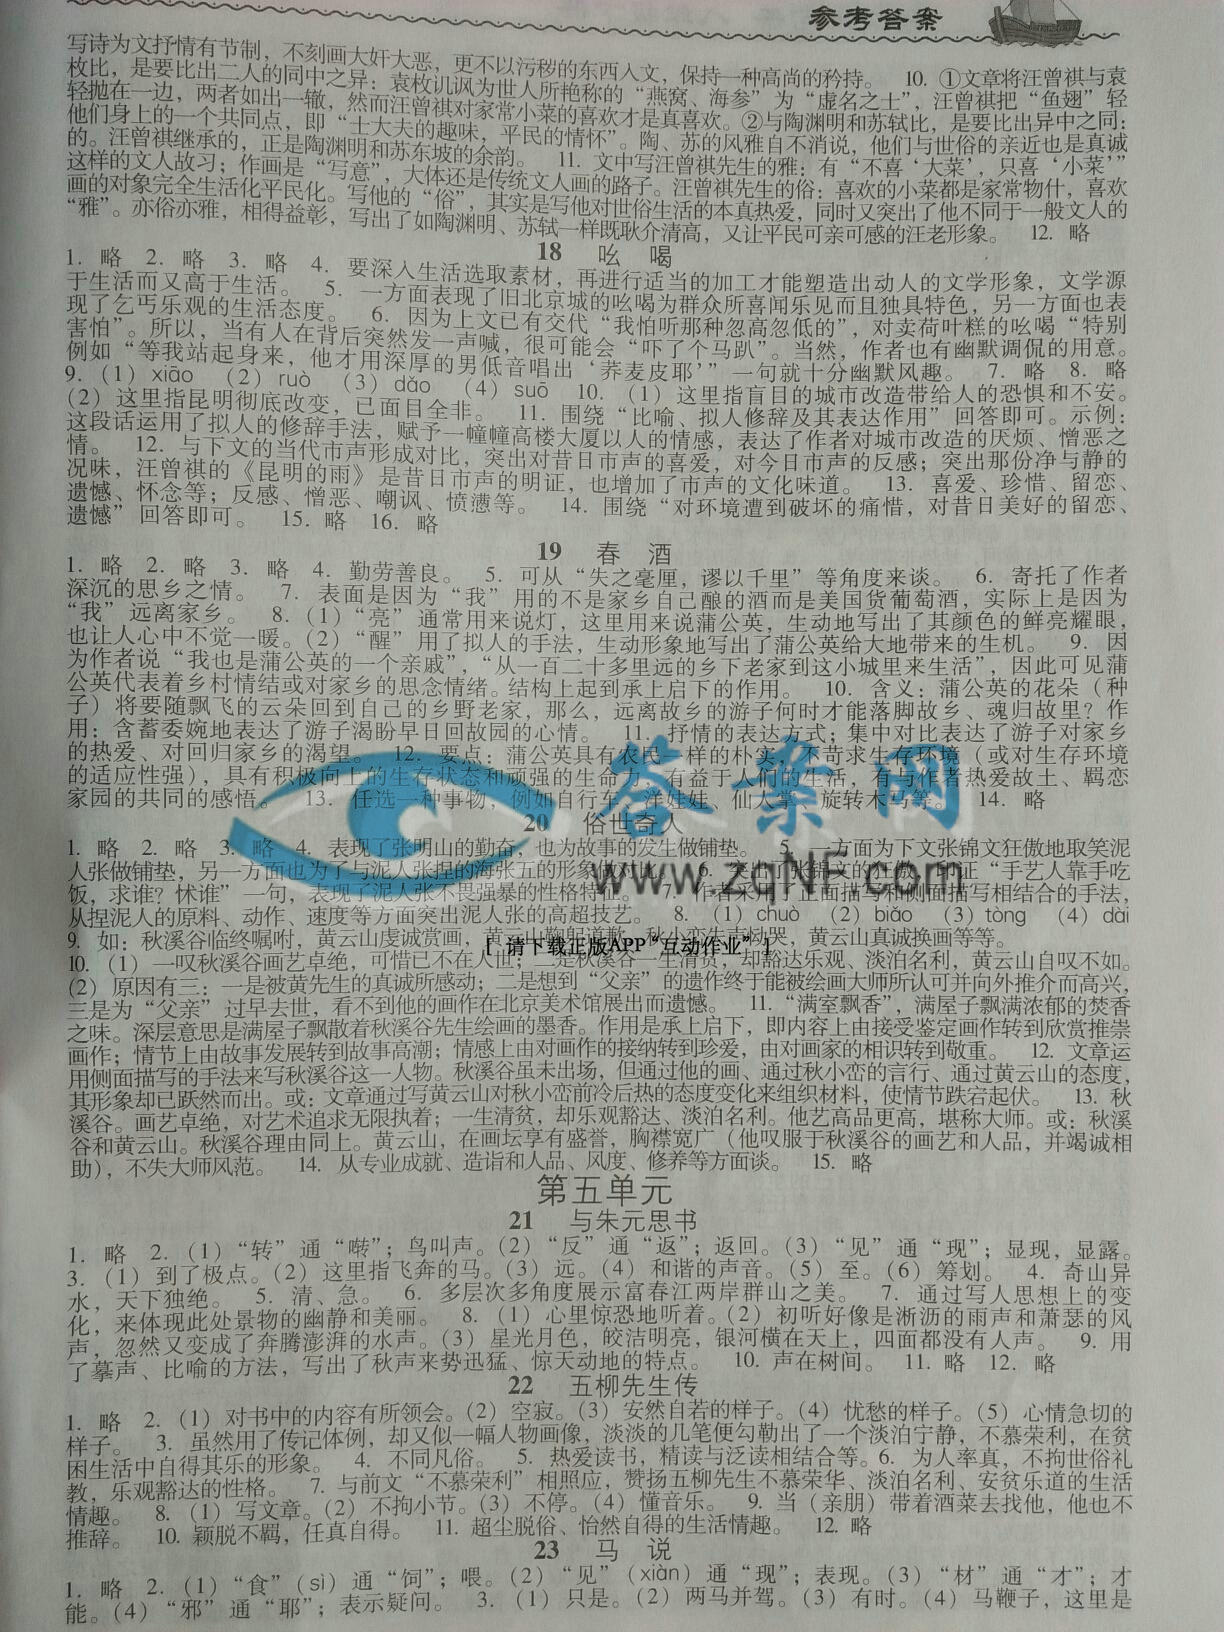 参考答案
写诗为文抒情有节制，不刻画大奸大恶，更不以污秽的东西入文，保持一种高尚的矜持。 10. ①文章将汪曾祺与袁
枚比，是要比出二人的同中之异：袁枚讥讽为世人所艳称的“燕窝、海参”为“虚名之士”，汪曾祺把“鱼翅”轻
轻抛在一边，两者如出一辙，然而汪曾祺对家常小菜的喜欢才是真喜欢。②与陶渊明和苏轼比，是要比出异中之同：
他们身上的一个共同点，即“士大夫的趣味，平民的情怀”。陶、苏的风雅自不消说，他们与世俗的亲近也是真诚
的。汪曾祺继承的，正是陶渊明和苏东坡的余韵。 11. 文中写汪曾祺先生的雅：有“不喜‘大菜’，只喜‘小菜’”
这样的文人故习；作画是“写意”，大体还是传统文人画的路子。汪曾祺先生的俗：喜欢的小菜都是家常物什，喜欢
画的对象完全生活化平民化。写他的“俗”，其实是写他对世俗生活的本真热爱，同时又突出了他不同于一般文人的
“雅”。亦俗亦雅，相得益彰，写出了如陶渊明、苏轼一样既耿介清高，又让平民可亲可感的汪老形象。 12. 略
18 吆喝
1. 略 2. 略 3. 略 4. 要深入生活选取素材，再进行适当的加工才能塑造出动人的文学形象，文学源
于生活而又高于生活。 5. 一方面表现了旧北京城的吆喝为群众所喜闻乐见而且独具特色，另一方面也表
现了乞丐乐观的生活态度。 6. 因为上文已有交代“我怕听那种忽高忽低的”，对卖荷叶糕的吆喝“特别
害怕”。所以，当有人在背后突然发一声喊，很可能会“吓了个马趴”。当然，作者也有幽默调侃的用意。
例如“等我站起身来，他才用深厚的男低音唱出‘荞麦皮耶’”一句就十分幽默风趣。 7. 略 8. 略
9. （1）xiāo （2）ruò （3）dǎo （4）suō 10. （1）这里指盲目的城市改造带给人的恐惧和不安。
（2）这里指昆明彻底改变，已面目全非。 11. 围绕“比喻、拟人修辞及其表达作用”回答即可。示例：
这段话运用了拟人的修辞手法，赋予一幢幢高楼大厦以人的情感，表达了作者对城市改造的厌烦、憎恶之
情。 12. 与下文的当代市声形成对比，突出对昔日市声的喜爱，对今日市声的反感；突出那份净与静的
况味，汪曾祺的《昆明的雨》是昔日市声的明证，也增加了市声的文化味道。 13. 喜爱、珍惜、留恋、
遗憾、怀念等；反感、憎恶、嘲讽、愤懑等。 14. 围绕“对环境遭到破坏的痛惜，对昔日美好的留恋、
遗憾”回答即可。 15. 略 16. 略
19 春酒
1. 略 2. 略 3. 略 4. 勤劳善良。 5. 可从“失之毫厘，谬以千里”等角度来谈。 6. 寄托了作者
深沉的思乡之情。 7. 表面是因为“我”用的不是家乡自己酿的酒而是美国货葡萄酒，实际上是因为
“我”远离家乡。 8.（1）“亮”通常用来说灯，这里用来说蒲公英，生动地写出了其颜色的鲜亮耀眼，
也让人心中不觉一暖。（2）“醒”用了拟人的手法，生动形象地写出了蒲公英给大地带来的生机。 9. 因
为作者说“我也是蒲公英的一个亲戚”，“从一百二十多里远的乡下老家到这小城里来生活”，因此可见蒲
公英代表着乡村情结或对家乡的思念情绪。结构上起到承上启下的作用。 10. 含义：蒲公英的花朵（种
子）将要随飘飞的云朵回到自己的乡野老家，那么，远离故乡的游子何时才能落脚故乡、魂归故里？作
用：含蓄委婉地表达了游子渴盼早日回故园的心情。 11. 抒情的表达方式；集中对比表达了游子对家乡
的热爱、对回归家乡的渴望。 12. 要点：蒲公英具有农民一样的朴实，不苛求生存环境（或对生存环境
的适应性强），具有积极向上的生存状态和顽强的生命力，有益于人们的生活，有与作者热爱故土、羁恋
家园的共同的感悟。 13. 任选一种事物，例如自行车、洋娃娃、仙人掌、旋转木马等。 14. 略
答案网
20 俗世奇人
1. 略 2. 略 3. 略 4. 表现了张明山的勤奋，也为故事的发生做铺垫。 5. 一方面为下文张锦文狂傲地取笑泥
人张做铺垫，另一方面也为了与泥人张捏的海张五的形象做对比。 6. 突出了张锦文的狂傲，印证“手艺人靠手吃
www.zqNF.com
饭，求谁？怵谁”一句，表现了泥人张不畏强暴的性格特征。 7. 作者采用了正面描写和侧面描写相结合的手法，
从捏泥人的原料、动作、速度等方面突出泥人张的高超技艺。 8. （1）chuò （2）biǎo （3）tòng （4）dài
9. 如：秋溪谷临终嘱咐，黄云山虔诚赏画，黄云山鞠躬道歉，秋小峦失声恸哭，黄云山真诚换画等等。
[ 请下载正版APP“互动作业” ]
10. （1）一叹秋溪谷画艺卓绝，可惜已不在人世；二是秋溪谷一生清贫，却豁达乐观、淡泊名利，黄云山自叹不如。
（2）原因有三：一是被黄先生的真诚所感动；二是想到“父亲”的遗作终于能被绘画大师所认可并向外推介而高兴，
三是为“父亲”过早去世，看不到他的画作在北京美术馆展出而遗憾。 11. “满室飘香”，满屋子飘满浓郁的焚香
之味。深层意思是满屋子飘散着秋溪谷先生绘画的墨香。作用是承上启下，即内容上由接受鉴定画作转到欣赏推崇
画作；情节上由故事发展转到故事高潮；情感上由对画作的接纳转到珍爱，由对画家的相识转到敬重。 12. 文章运
用侧面描写的手法来写秋溪谷这一人物。秋溪谷虽未出场，但通过他的画、通过秋小峦的言行、通过黄云山的态度，
其形象却已跃然而出。或：文章通过写黄云山对秋小峦前冷后热的态度变化来组织材料，使情节跌宕起伏。 13. 秋
溪谷。画艺卓绝，对艺术追求无限执着；一生清贫，却乐观豁达、淡泊名利。他艺高品更高，堪称大师。或：秋溪
谷和黄云山。秋溪谷理由同上。黄云山，在画坛享有盛誉，胸襟宽广（他叹服于秋溪谷的画艺和人品，并竭诚相
助），不失大师风范。 14. 从专业成就、造诣和人品、风度、修养等方面谈。 15. 略
第五单元
21 与朱元思书
1. 略 2.（1）“转”通“啭”；鸟叫声。（2）“反”通“返”；返回。（3）“见”通“现”；显现，显露。
3.（1）到了极点。（2）这里指飞奔的马。（3）远。（4）和谐的声音。（5）至。（6）筹划。 4. 奇山异
水，天下独绝。 5. 清、急。 6. 多层次多角度展示富春江两岸群山之美。 7. 通过写人思想上的变
化，来体现此处景物的幽静和美丽。 8. （1）心里惊恐地听着。（2）初听好像是淅沥的雨声和萧瑟的风
声，忽然又变成了奔腾澎湃的水声。（3）星光月色，皎洁明亮，银河横在天上，四面都没有人声。 9. 用
了摹声、比喻的方法，写出了秋声来势迅猛、惊天动地的特点。 10. 声在树间。 11. 略 12. 略
22 五柳先生传
1. 略 2.（1）对书中的内容有所领会。（2）空寂。（3）安然自若的样子。（4）忧愁的样子。（5）心情急切的
样子。 3. 虽然用了传记体例，却又似一幅人物画像，淡淡的几笔便勾勒出了一个淡泊宁静，不慕荣利，在贫
困生活中自得其乐的形象。 4. 不同凡俗。 5. 热爱读书，精读与泛读相结合等。 6. 为人率真，不拘世俗礼
教，乐观豁达的性格。 7. 与前文“不慕荣利”相照应，赞扬五柳先生不慕荣华、淡泊名利、安贫乐道的生活
情趣。 8. （1）写文章。（2）不拘小节。（3）不停。（4）懂音乐。 9. 当（亲朋）带着酒菜去找他，他也不
推辞。 10. 颖脱不羁，任真自得。 11. 超尘脱俗、怡然自得的生活情趣。 12. 略
23 马说
1. 略 2.（1）“食”（sì）通“饲”；喂。（2）“见”（xiàn）通“现”；表现。（3）“材”通“才”；才
能。（4）“邪”通“耶”；表示疑问。 3. （1）只是。（2）两马并驾。（3）有时。（4）马鞭子，这里是